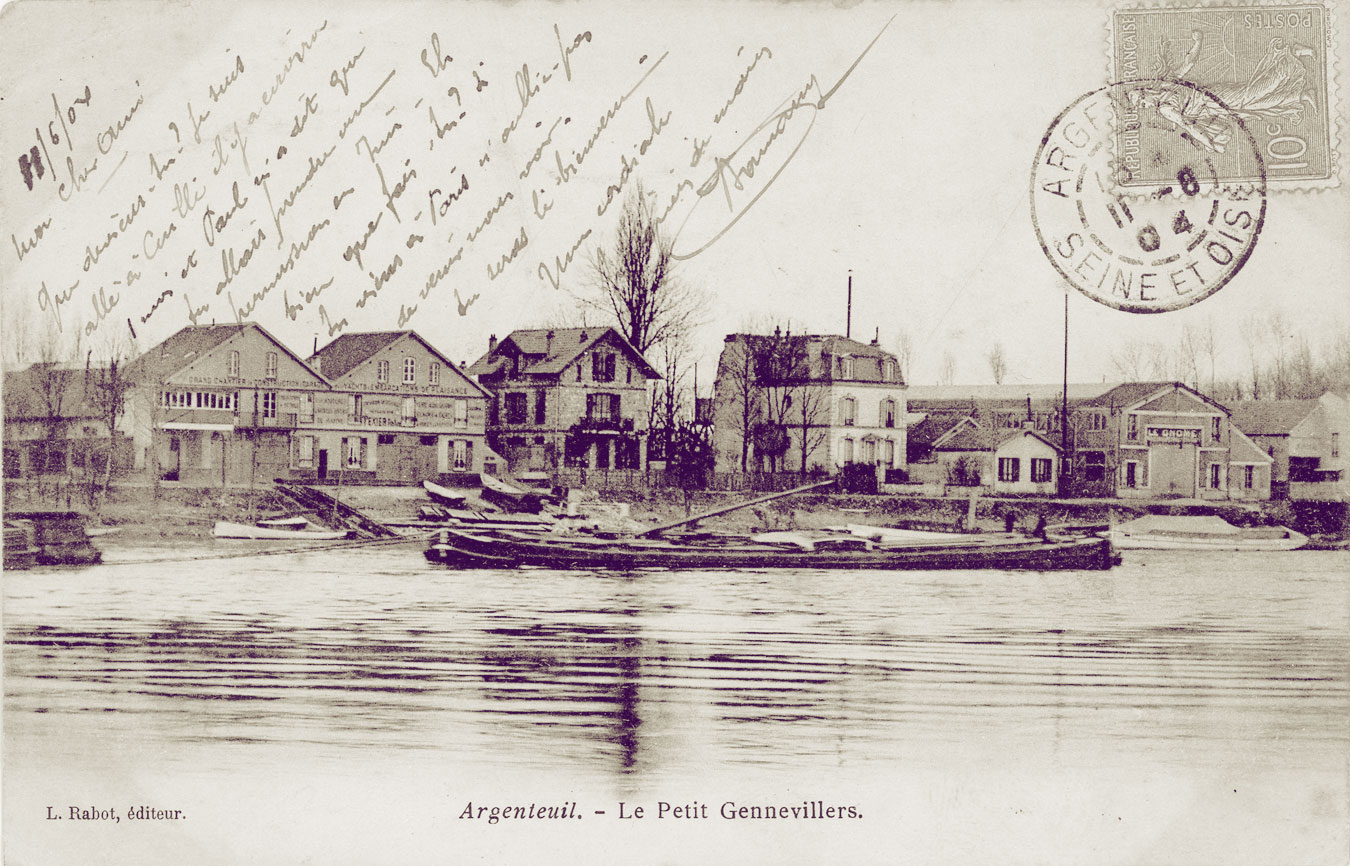 11/6/04
Mon cher Ami
Que deviens tu? Je suis
allé à il y a environ
1 mois et Paul m'a dit que
tu allais prendre une
permission en Juin. Eh
bien que fais tu? Si
tu viens à Paris n'oublie pas
de venir nous voir.
tu seras le bienvenu
Une cordiale
RÉPUBLIQUE FRANÇAISE
POSTES
10c
ARGENTEUIL
11 -6
04
SEINE ET OISE
GRAND CHANTIER DE CONSTRUCTION
YACHTS & EMBARCATIONS DE PLAISANCE
TEXIER
LE GNOME
L. Rabot, éditeur.
Argenteuil. - Le Petit Gennevillers.